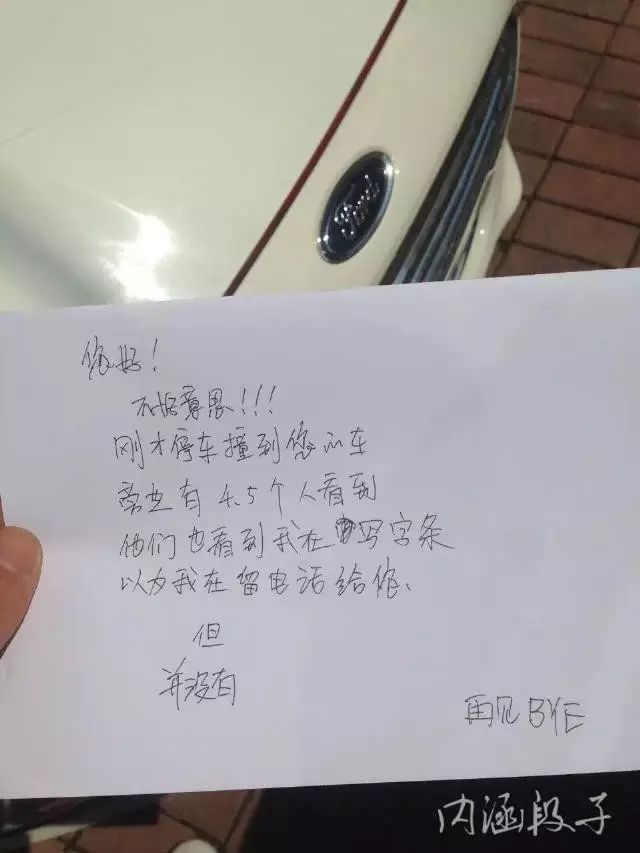 Ford
您好！
不好意思！！！
刚才停车撞到您的车
旁边有4.5个人看到
他们也看到我在写字条
以为我在留电话给你、
但
并没有
再见 BYE
内涵段子